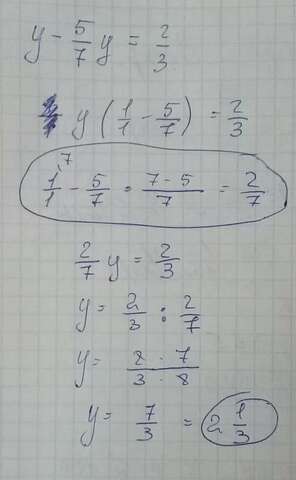 y - 5/7 y = 2/3
y (1/1 - 5/7) = 2/3
1/1 \7 - 5/7 = 7-5/7 = 2/7
2/7 y = 2/3
y = 2/3 : 2/7
y = 2·7/3·2
y = 7/3 = 2 1/3